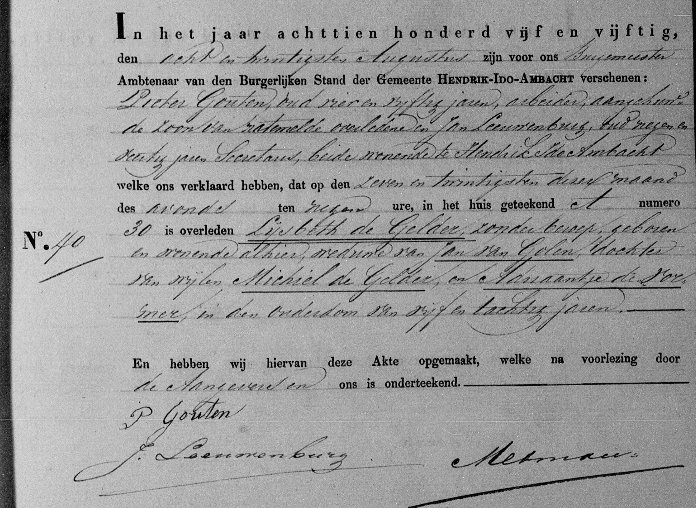 In het jaar achttien honderd vijf en vijftig,
den acht en twintigsten Augustus zijn voor ons Burgemeester
Ambtenaar van den Burgerlijken Stand der Gemeente HENDRIK-IDO-AMBACHT verschenen:
Pieter Gouten, oud vier en vijftig jaren, arbeider, aangehuwde
de zoon van natemelde overledene en Jan Leeuwenburg, oud negen en
veertig jaren Secretaris, beide wonende te Hendrik Ido Ambacht
welke ons verklaard hebben, dat op den zeven en twintigsten dezer maand
des avonds ten negen ure, in het huis geteekend A numero
30 is overleden Lijsbeth de Gelder, zonder beroep, geboren
en wonende alhier, weduwe van Jan van Golen, dochter
van wijlen Michiel de Gelder, en Adriaantje de
in den ouderdom van vijf en tachtig jaren.
N.º 40
En hebben wij hiervan deze Akte opgemaakt, welke na voorlezing door
de Aangevers en ons is onderteekend.
P Gouten
J. Leeuwenburg